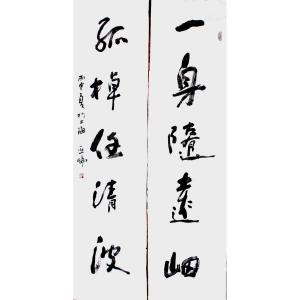 一身隨遠岫
孤棹任清波
丙申夏於上海